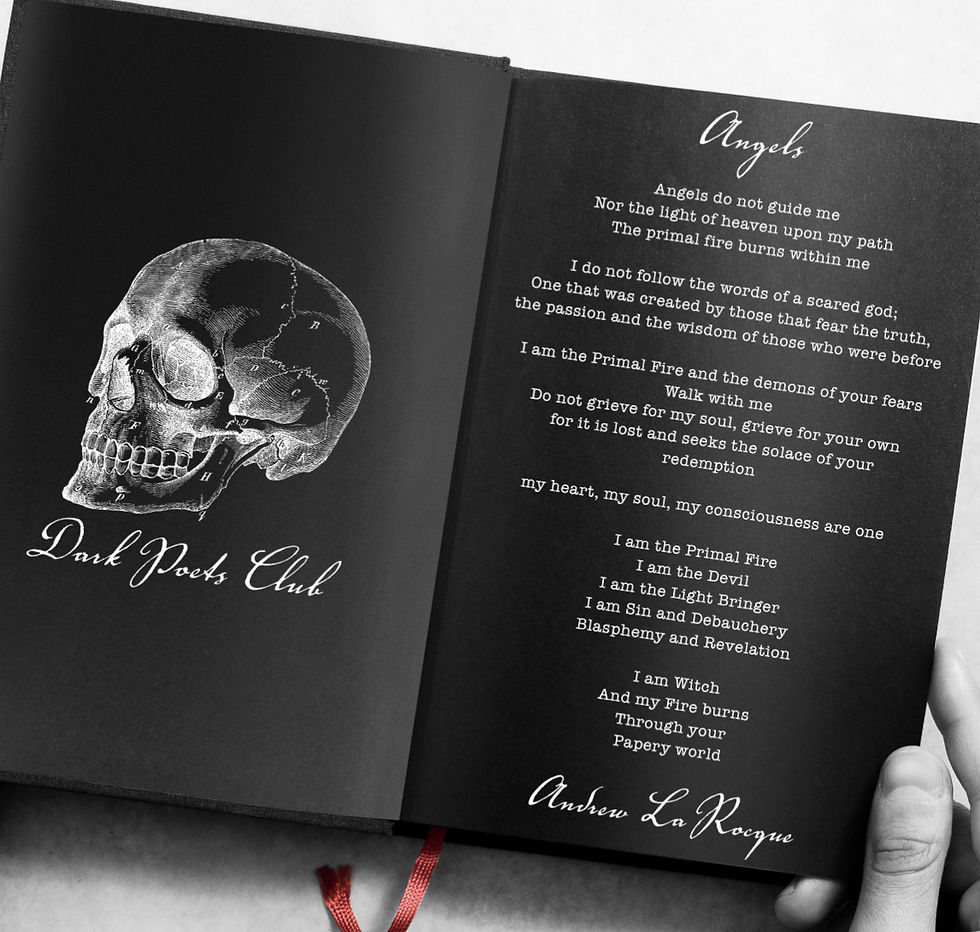 Dark Poets Club
Angels
Angels do not guide me
Nor the light of heaven upon my path
The primal fire burns within me
I do not follow the words of a scared god;
One that was created by those that fear the truth,
the passion and the wisdom of those who were before
I am the Primal Fire and the demons of your fears
Walk with me
Do not grieve for my soul, grieve for your own
for it is lost and seeks the solace of your
redemption
my heart, my soul, my consciousness are one
I am the Primal Fire
I am the Devil
I am the Light Bringer
I am Sin and Debauchery
Blasphemy and Revelation
I am Witch
And my Fire burns
Through your
Papery world
Andrew La Rocque